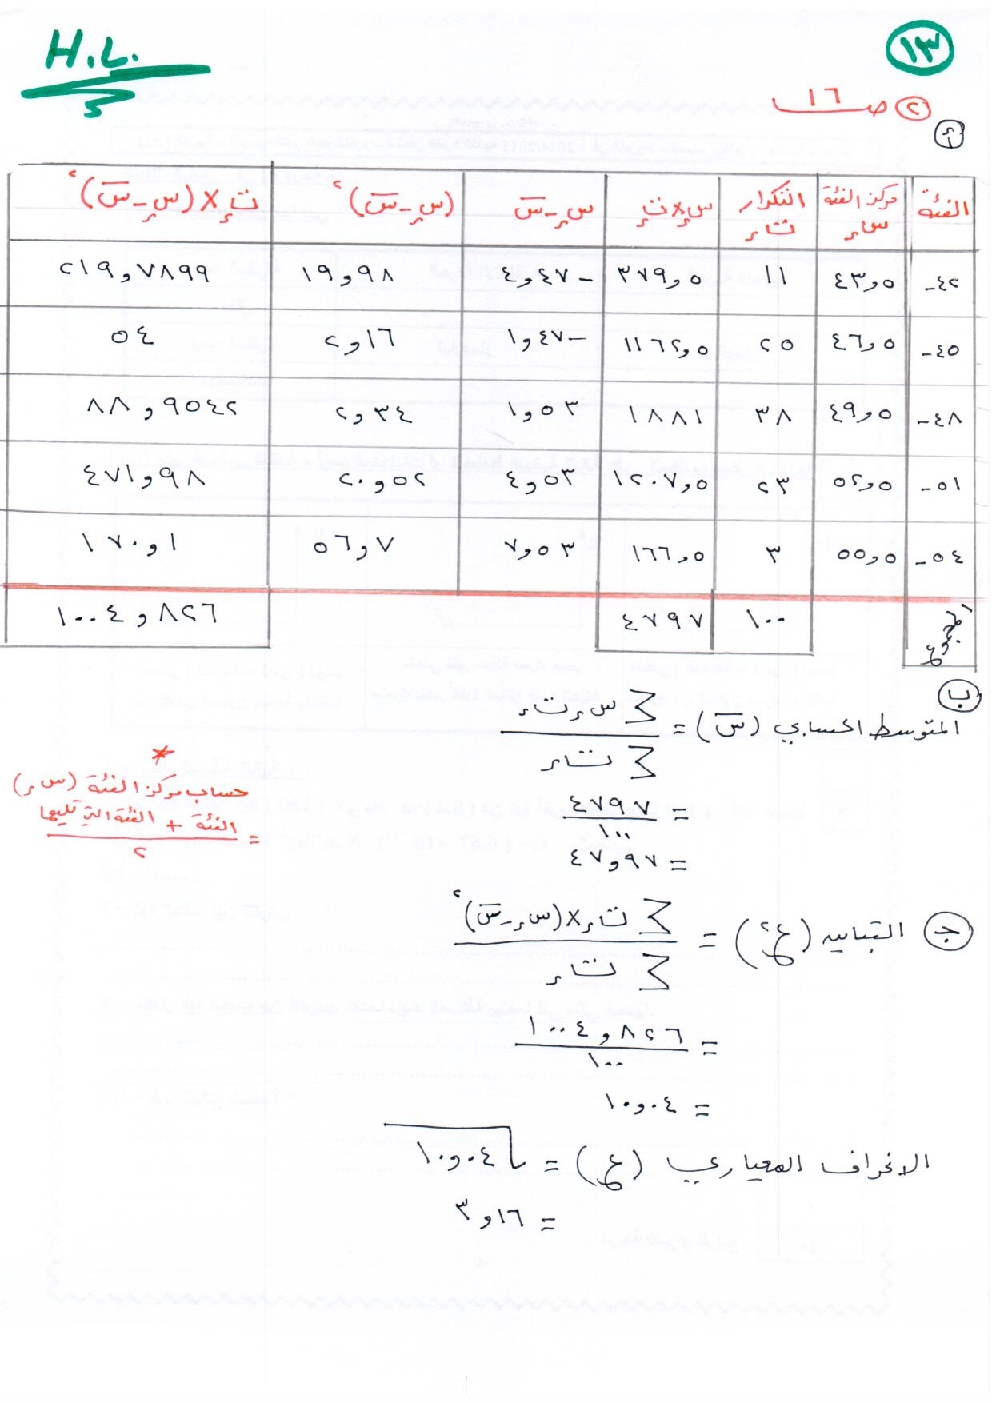 H.L.
١٣
٢ ص ١٦
٩
الفئة | مركز الفئة سر | التكرار تر | سر×تر | سر-س̄ | (سر-س̄)٢ | تر×(سر-س̄)٢
٤٢- | ٤٣,٥ | ١١ | ٤٧٨,٥ | -٤,٤٧ | ١٩,٩٨ | ٢١٩,٧٨٩٩
٤٥- | ٤٦,٥ | ٢٥ | ١١٦٢,٥ | -١,٤٧ | ٢,١٦ | ٥٤
٤٨- | ٤٩,٥ | ٣٨ | ١٨٨١ | ١,٥٣ | ٢,٣٤ | ٨٨,٩٥٤٢
٥١- | ٥٢,٥ | ٢٣ | ١٢٠٧,٥ | ٤,٥٣ | ٢٠,٥٢ | ٤٧١,٩٨
٥٤- | ٥٥,٥ | ٣ | ١٦٦,٥ | ٧,٥٣ | ٥٦,٧ | ١٧٠,١
المجموع | ١٠٠ | ٤٧٩٧ | ١٠٠٤,٨٢٦
ب
المتوسط الحسابي (س̄) = ∑ سر تر / ∑ تر
= ٤٧٩٧ / ١٠٠
= ٤٧,٩٧
*
حساب مركز الفئة (سر)
= الفئة + الفئة التي تليها / ٢
ج التباين (ع٢) = ∑ تر×(سر-س̄)٢ / ∑ تر
= ١٠٠٤,٨٢٦ / ١٠٠
= ١٠,٠٤
الانحراف المعياري (ع) = √١٠,٠٤
= ٣,١٦